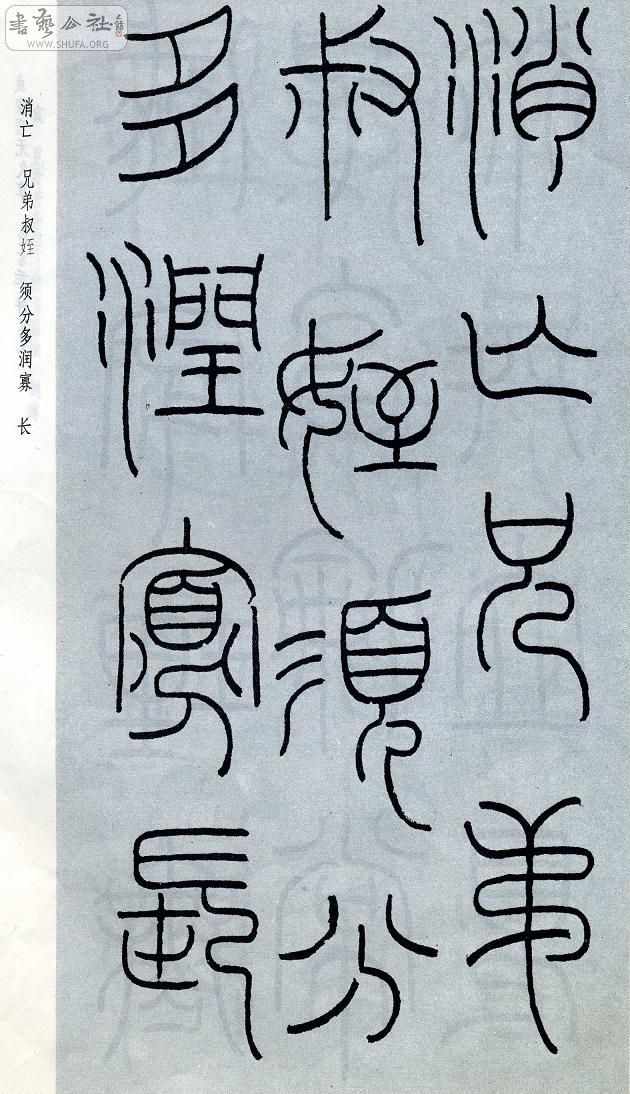 消亡兄弟
叔姪须分
多润寡长
消亡 兄弟叔姪 须分多润寡 长
書藝公社
WWW.SHUFA.ORG